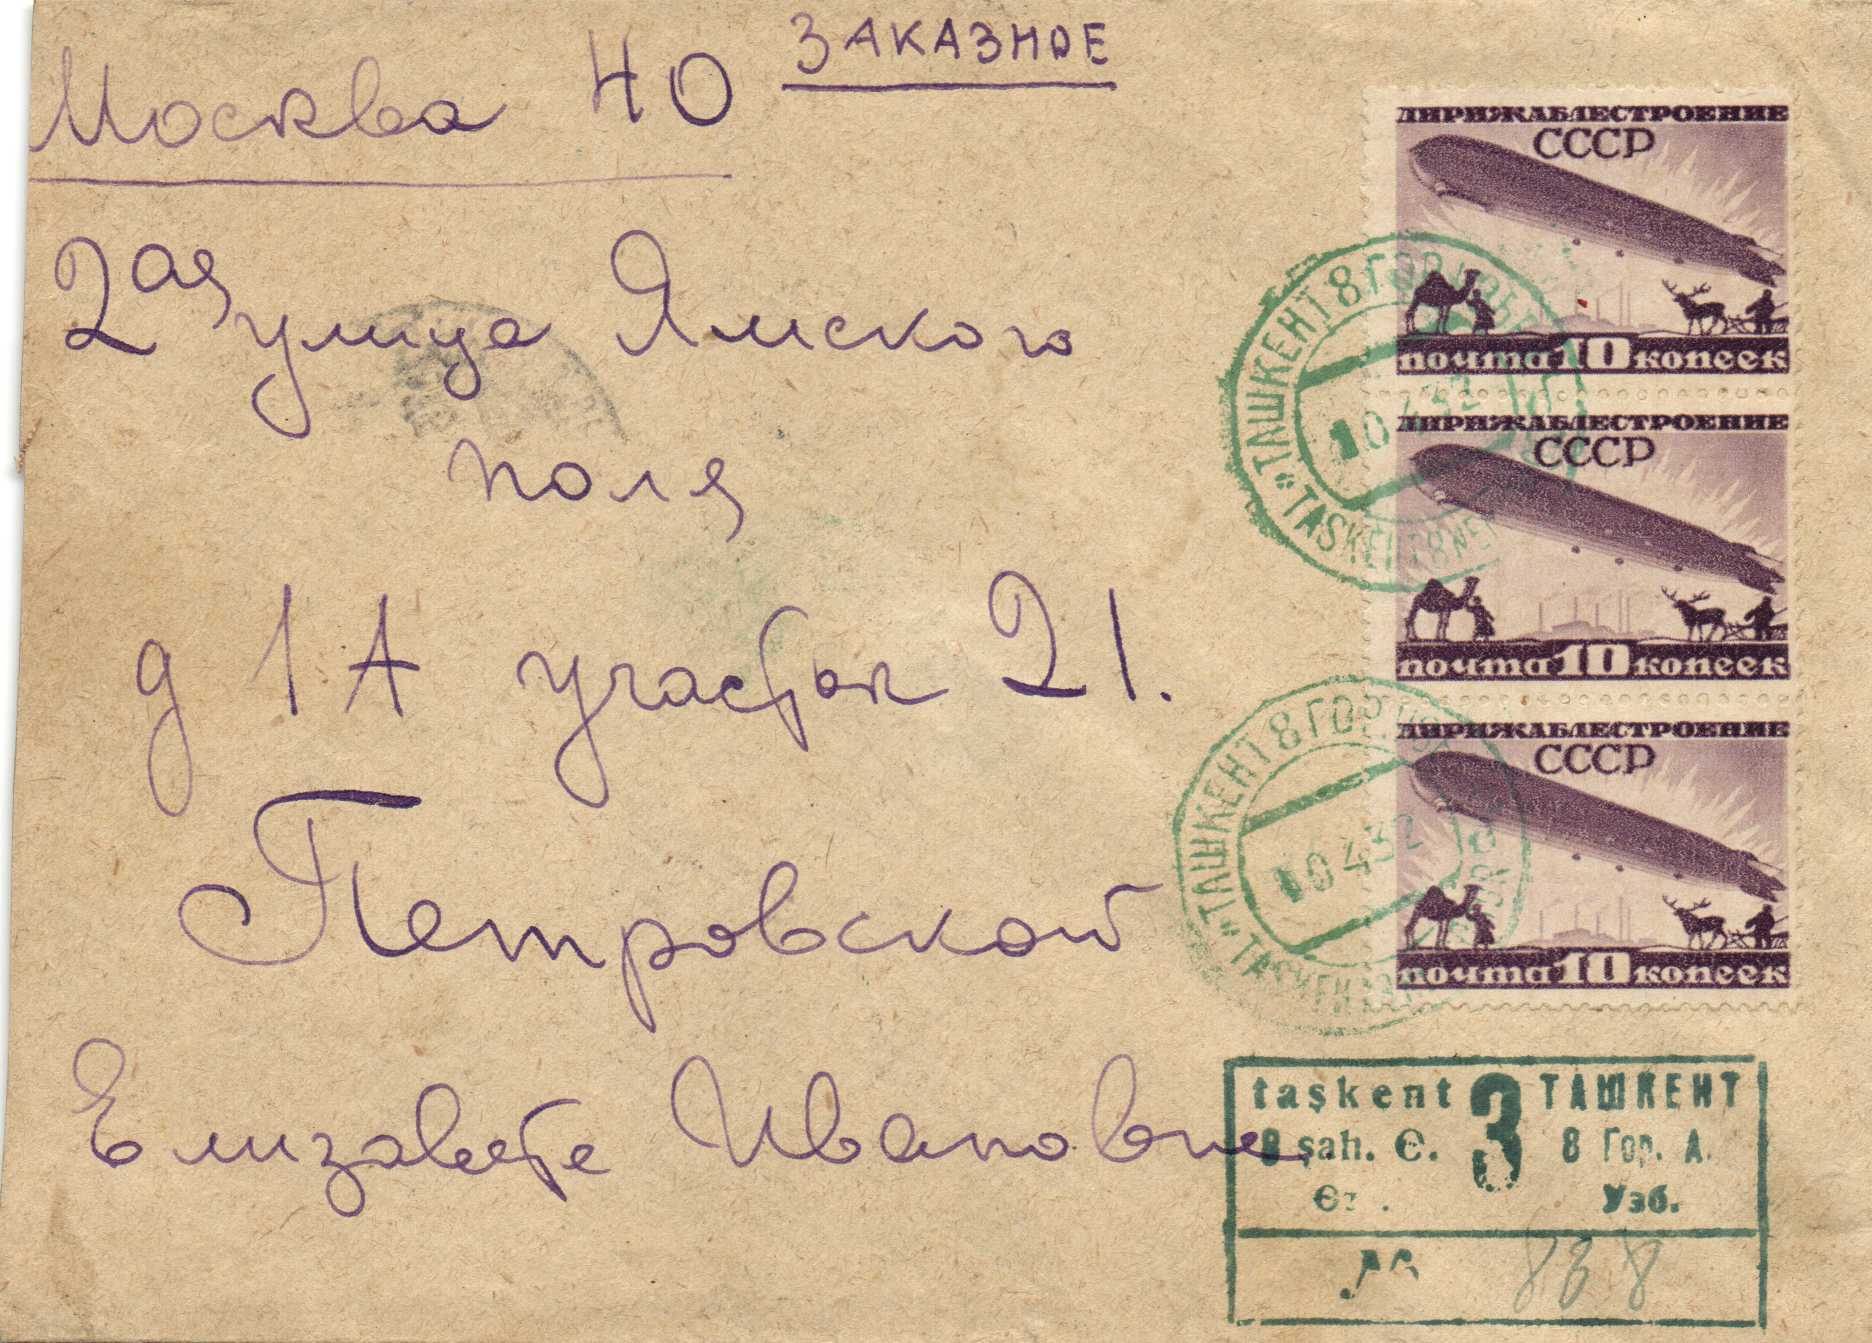 ЗАКАЗНОЕ
Москва 40
2ая улица Ямского
поля
д 1А участок 21.
Петровской
Елизавете Ивановне
ДИРИЖАБЛЕСТРОЕНИЕ
СССР
почта 10 копеек
ДИРИЖАБЛЕСТРОЕНИЕ
СССР
почта 10 копеек
ДИРИЖАБЛЕСТРОЕНИЕ
СССР
почта 10 копеек
ТАШКЕНТ 8 ГОР
10 4 32
TAŞKENT
ТАШКЕНТ 8 ГОР
10 4 32
TAŞKENT
taşkent 3 ТАШКЕНТ
8 şah. Ɵ. 8 Гор. А.
Узб.
№ 838